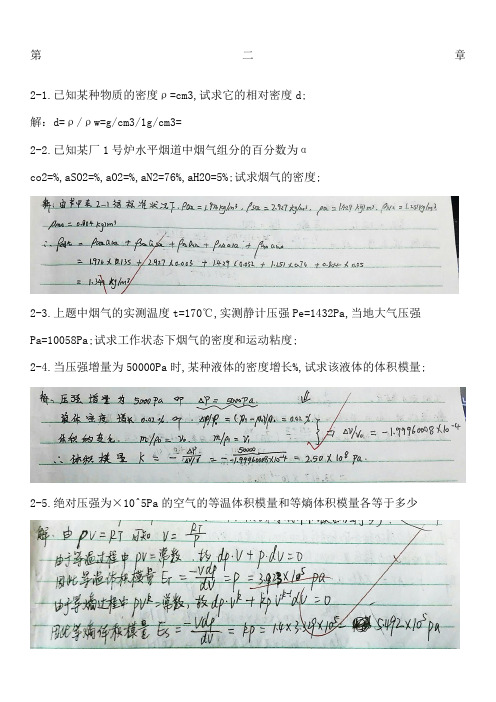 第 二 章
2-1.已知某种物质的密度ρ=cm3,试求它的相对密度d;
解: d=ρ/ρw=g/cm3/1g/cm3=
2-2.已知某厂1号炉水平烟道中烟气组分的百分数为α
co2=%,aSO2=%,aO2=%,aN2=76%,aH2O=5%;试求烟气的密度;
解:由书中表2-1得标准状况下,ρco2=1.976kg/m³, ρso2=2.927kg/m³, ρo2=1.429kg/m³, ρN2=1.251kg/m³
ρH2O=0.804kg/m³
= 1.976×0.135 + 2.927×0.003 + 1.429×0.052 + 1.251×0.76 + 0.804×0.05
2-3.上题中烟气的实测温度t=170℃,实测静计压强Pe=1432Pa,当地大气压强
Pa=10058Pa;试求工作状态下烟气的密度和运动粘度;
2-4.当压强增量为50000Pa时,某种液体的密度增长%,试求该液体的体积模量;
解:压强增量为5000Pa 即 ΔP=5000Pa.
液体密度增长0.02% 即
m/ρ1=V0. m/ρ1=V1 ⇒ ΔV/V0=-1.99960008×10⁻⁴
∴ 体积模量 K=-ΔP/(ΔV/V)=-50000/-1.99960008×10⁻⁴=2.50×10⁸pa.
2-5.绝对压强为×10^5Pa的空气的等温体积模量和等熵体积模量各等于多少
解:由PV=RT可知 V=RT/P
由于等温过程中PV=常数,故dp·V+p·dV=0
因此等温体积模量ET=-Vdp/dV=P=
由于等熵过程中pVᵏ=常数,故dp·Vᵏ+kpVᵏ⁻¹dV=0
因此等熵体积模量Es=-Vdp/dV=kp=1.4×3.923×10⁵= 5.492×10⁵pa